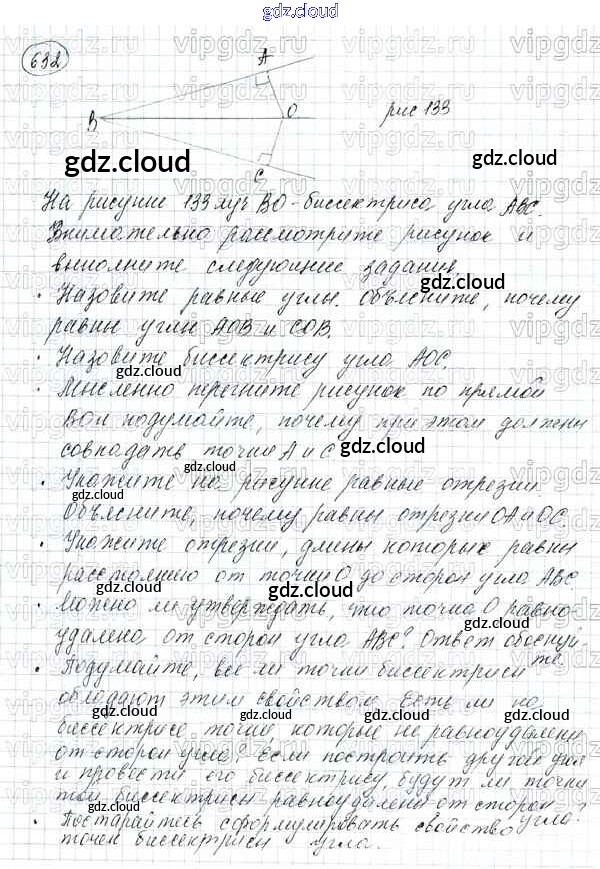 gdz.cloud
632
A
B
O
C
рис 133
gdz.cloud
gdz.cloud
На рисунке 133 луч BO - биссектриса угла ABC.
Внимательно рассмотрите рисунок и
gdz.cloud
выполните следующие задания.
gdz.cloud
· Назовите равные углы. Объясните, почему
равны углы AOB и COB.
· Назовите биссектрису угла AOC.
gdz.cloud
· Мысленно перегните рисунок по прямой
BO и подумайте, почему при этом должны
совпадать точки A и C.
gdz.cloud
gdz.cloud
· Укажите на рисунке равные отрезки.
Объясните, почему равны отрезки OA и OC.
gdz.cloud
· Укажите отрезки, длины которых равны
расстоянию от точки O до сторон угла ABC.
gdz.cloud
· Можно ли утверждать, что точка O равно-
gdz.cloud
удалена от сторон угла ABC? Ответ обоснуй-
те.
· Подумайте, все ли точки биссектрисы
gdz.cloud
обладают этим свойством. Есть ли на
gdz.cloud
биссектрисе точки, которые не равноудалены
от сторон угла? Если построить другой угол
и провести его биссектрису, будут ли точки
gdz.cloud
той биссектрисы равноудалены от сторон
угла?
gdz.cloud
· Постарайтесь сформулировать свойство
точек биссектрисы угла.
gdz.cloud